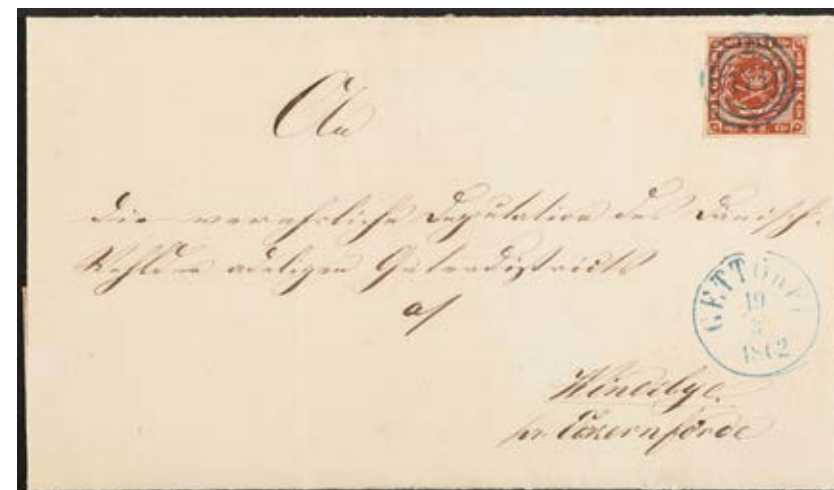 An
die verehrliche Deputation des Dänisch-
Wohlder adeligen Güterdistricts
a/
Windebye.
pr. Eckernförde
GETTORF
19
1862